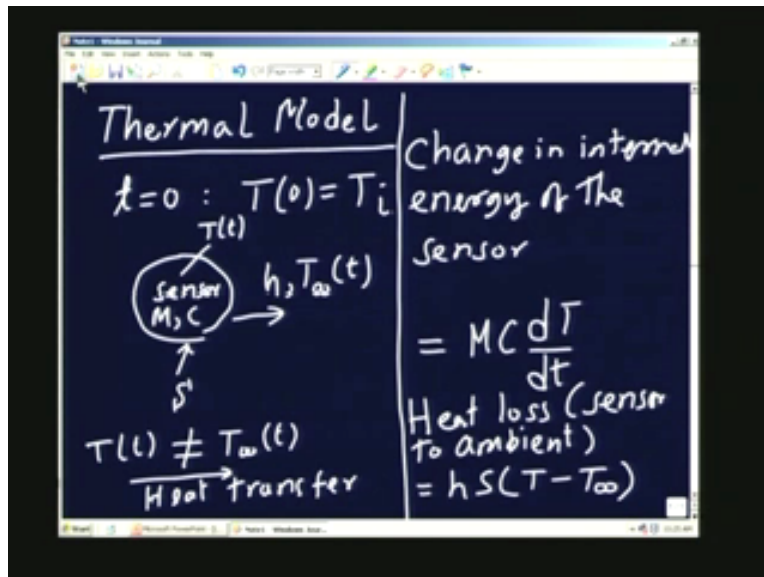 Note1 - Windows Journal
File Edit View Insert Actions Tools Help
Page width
Thermal Model
t=0 : T(0) = Ti
T(t)
sensor
M, C
h, T∞(t)
S
T(t) ≠ T∞(t)
Heat transfer
Change in internal
energy of the
sensor
= MC dT/dt
Heat loss (sensor
to ambient)
= hS(T - T∞)
Start
Microsoft PowerPoint
Note1 - Windows Jour...
11:25 AM